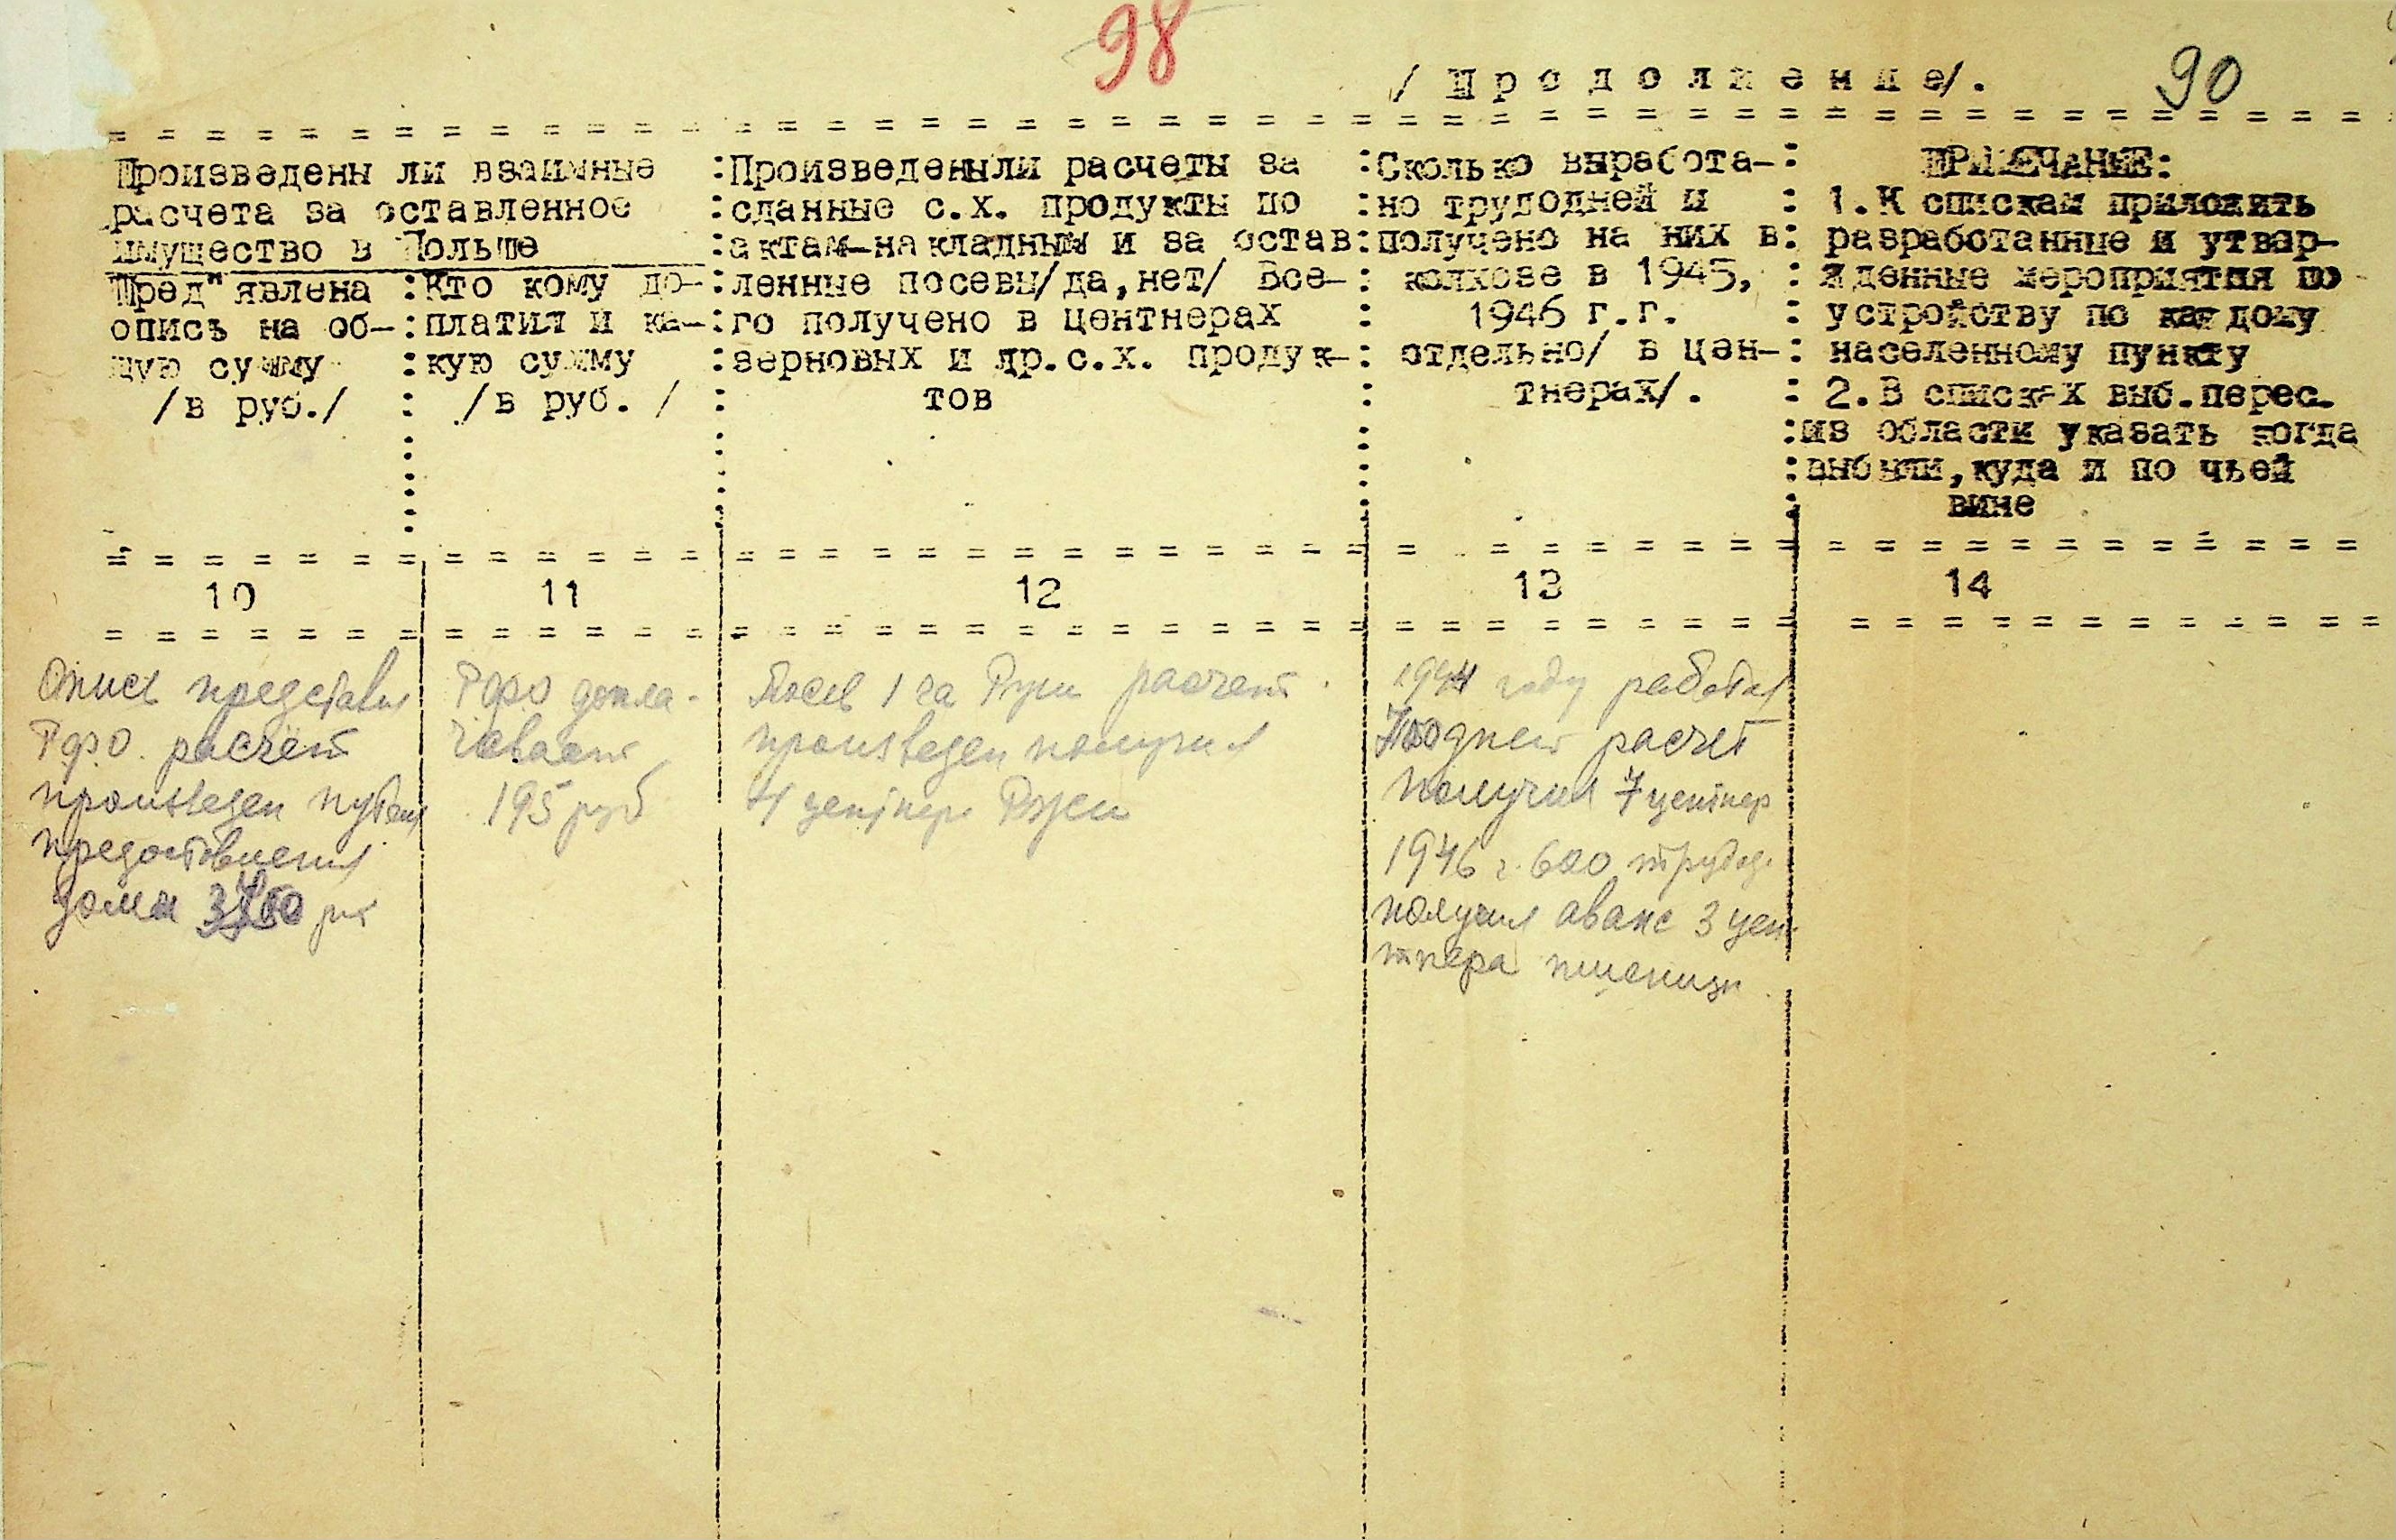 98
/Продолжение/.
90
Произведены ли взаимные
расчета за оставленное
имущество в Польше
Пред"явлена
опись на об-
щую сумму
/в руб./
Кто кому до-
платил и ка-
кую сумму
/в руб. /
Произведены ли расчеты за
сданные с.х. продукты по
актам-накладным и за остав
ленные посевы/да,нет/ Все-
го получено в центнерах
зерновых и др.с.х. продук-
тов
Сколько выработа-
но трудодней и
получено на них в
колхозе в 1945,
1946 г.г.
отдельно/ в цен-
тнерах/.
ПРИМЕЧАНИЕ:
1.К спискам приложить
разработанные и утвер-
жденные мероприятия по
устройству по каждому
населенному пункту
2.В списках выб.перес.
из области указать когда
выбыли,куда и по чьей
вине
10 11 12 13 14
Опись представил
Рфо. расчёт
произведен путем
предоставления
дома
Рфо допла-
чевает
195 руб
Посев 1 га Ржи расчет
произведен получил
4 центнер Ржи
1944 году работал
дней расчет
получил 7 центнер
1946 г. 600 трудод.
получил аванс 3 цен
тнера пшеницы